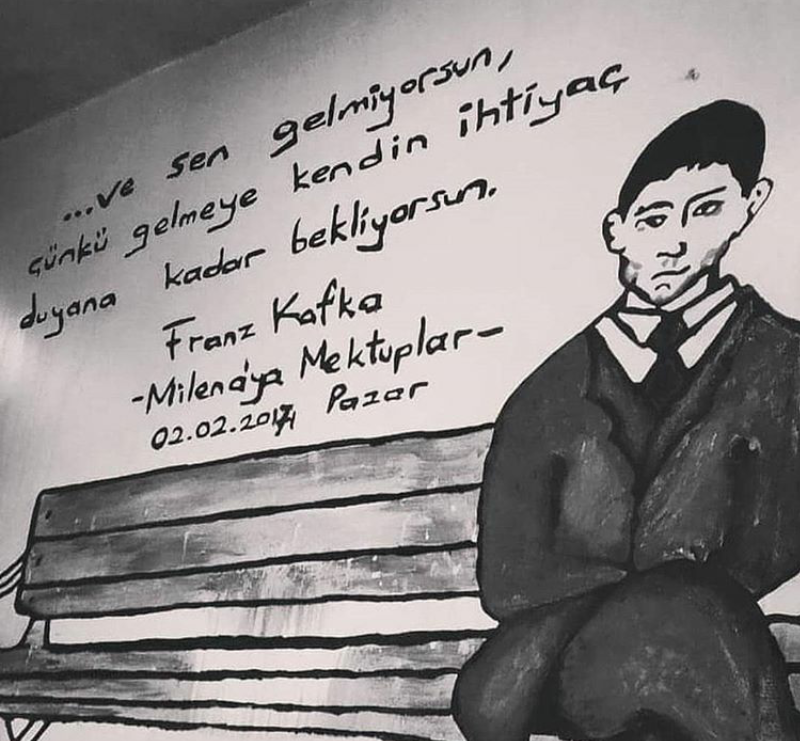 ...ve sen gelmiyorsun,
çünkü gelmeye kendin ihtiyaç
duyana kadar bekliyorsun.
Franz Kafka
-Milena'ya Mektuplar-
Pazar